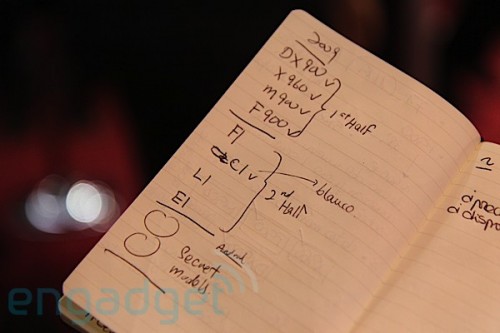 2009
DX900 v
X960 v
M900 v
F900 v
1st Half
F1
C1 v
blanco
L1
2nd
Half
E1
Android
Secret
models
engadget